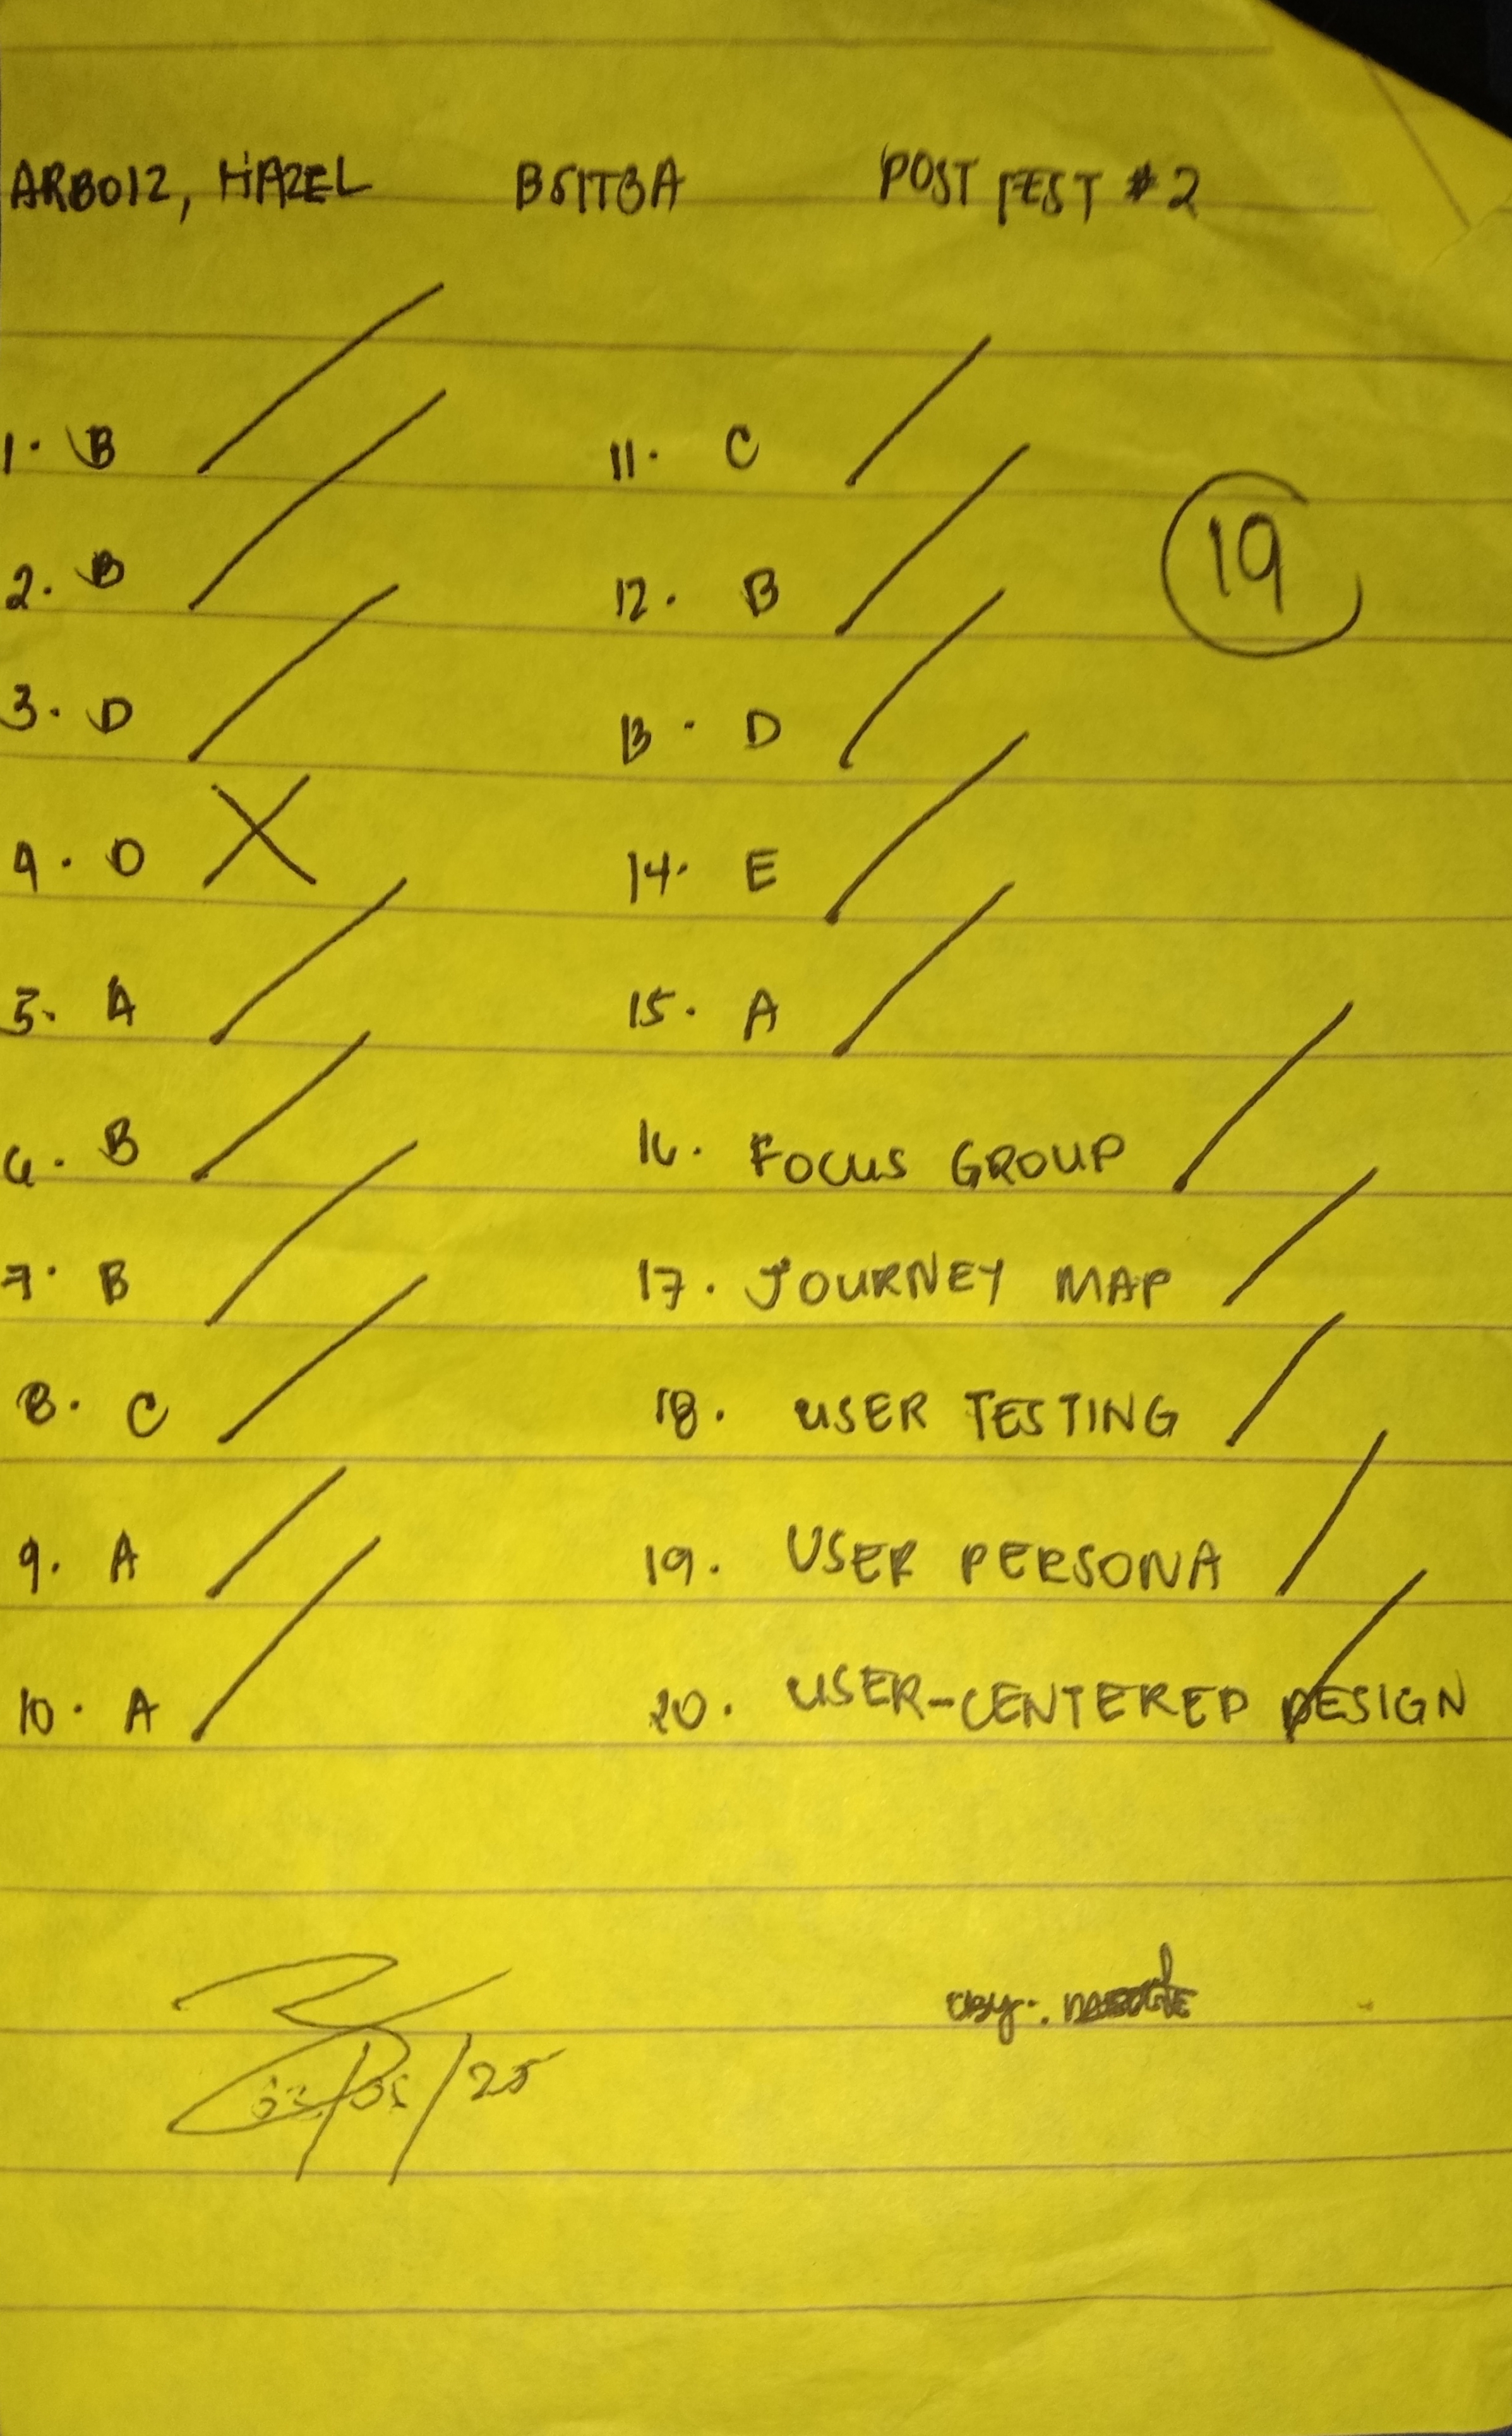 ARBOIZ, HAZEL BSIT3A POST TEST #2
1. B
2. B
3. D
4. D
5. A
6. B
7. B
8. C
9. A
10. A
11. C
12. B
13. D
14. E
15. A
16. FOCUS GROUP
17. JOURNEY MAP
18. USER TESTING
19. USER PERSONA
20. USER-CENTERED DESIGN
19